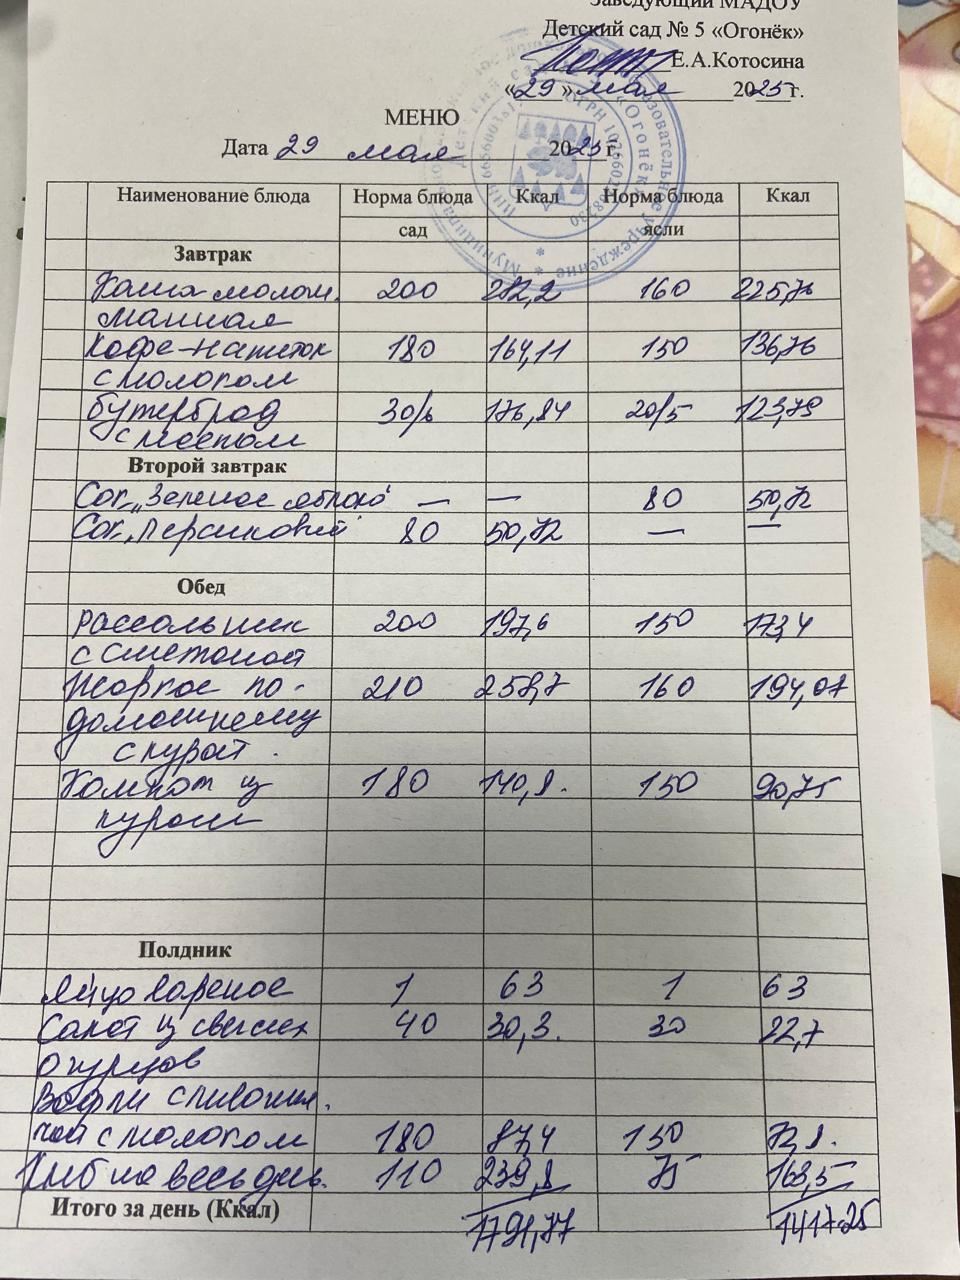 Заведующий МАДОУ
Детский сад № 5 «Огонёк»
Е.А.Котосина
«29» мая 2025 г.
МЕНЮ
Дата 29 мая 2025 г.
Наименование блюда Норма блюда Ккал Норма блюда Ккал
сад ясли
Завтрак
Каша молочн. 200 282,2 160 225,76
манная
Кофе-напиток 180 164,11 150 136,76
с молоком
бутерброд 30/6 176,84 20/5 123,79
с маслом
Второй завтрак
Сок „Зеленое яблоко" — — 80 50,72
Сок „Персиковый" 80 50,72 — —
Обед
Рассольник 200 197,6 150 173,4
с сметаной
Жаркое по- 210 258,7 160 194,07
домашнему
с курой.
Компот из 180 140,8. 150 90,75
кураги
Полдник
Яйцо вареное 1 63 1 63
Салат из свежих 40 30,3. 30 22,7
огурцов
Вафли сливочн.
чай с молоком 180 87,4 150 72,8.
Хлеб на весь день. 110 239,8 75 163,5
Итого за день (Ккал) 1791,77 1417.25